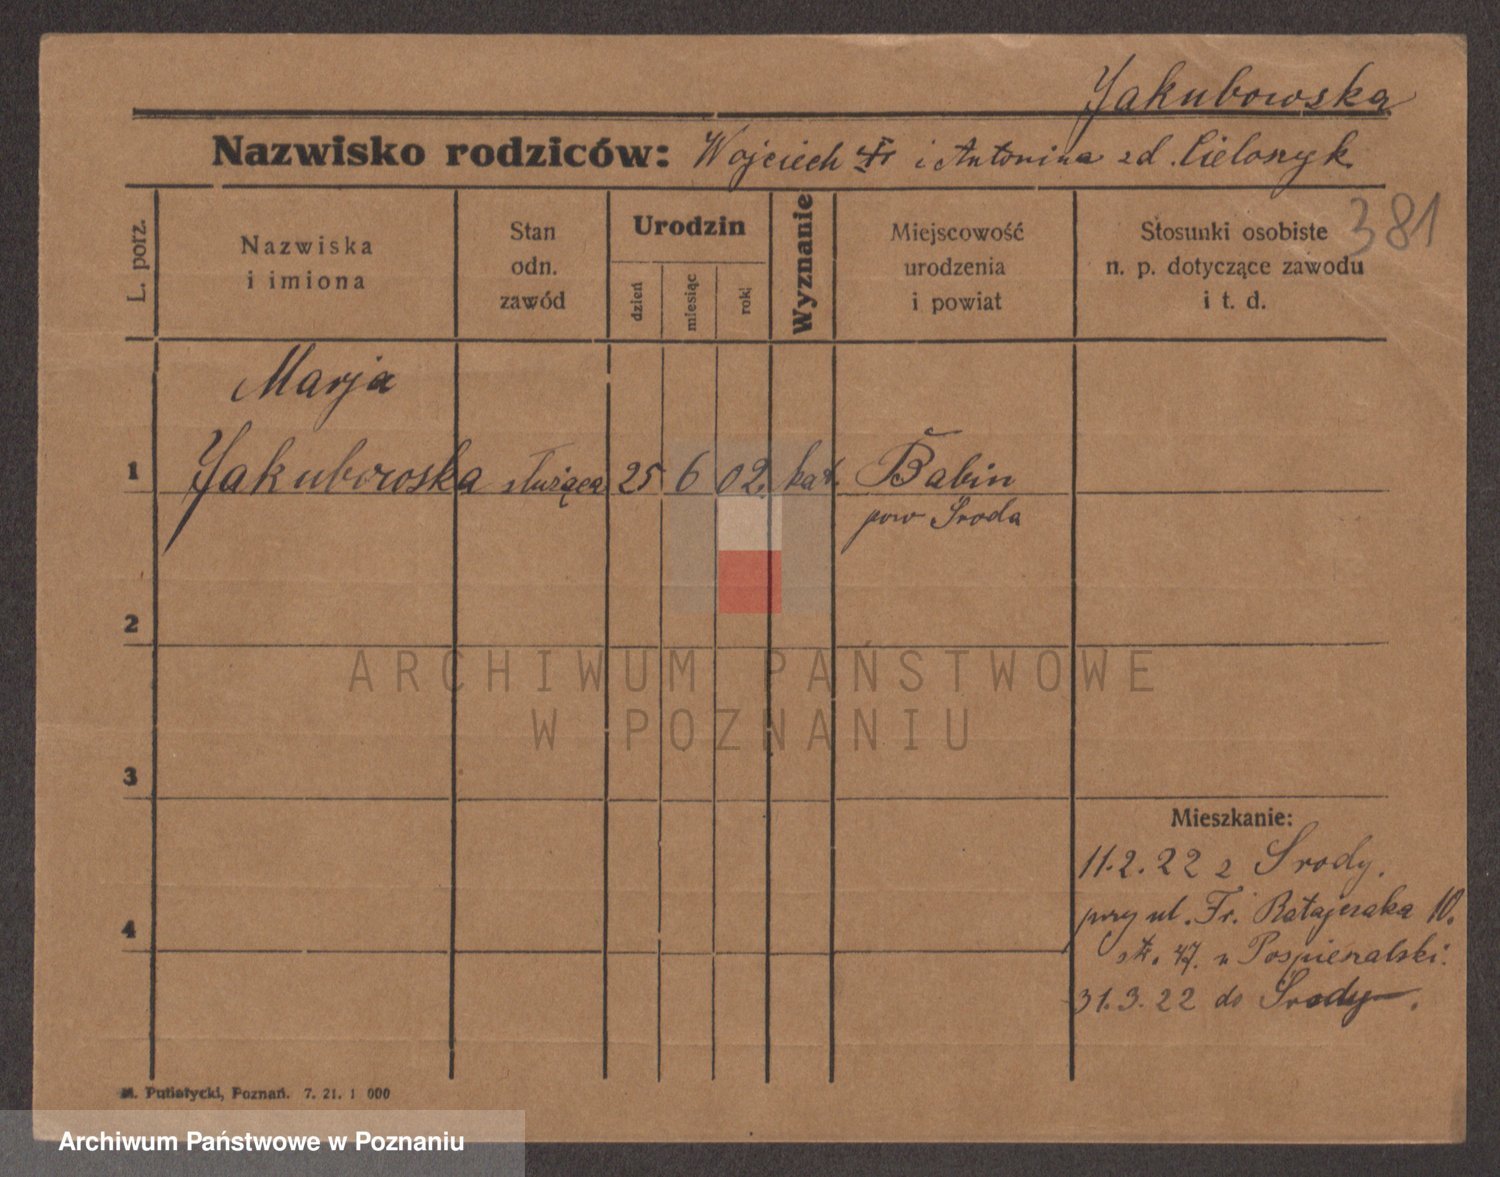 Jakubowska
Nazwisko rodziców: Wojciech i Antonina zd.
381
L. porz.
Nazwiska
i imiona
Stan
odn.
zawód
Urodzin
dzień
miesiąc
rok
Wyznanie
Miejscowość
urodzenia
i powiat
Stosunki osobiste
n. p. dotyczące zawodu
i t. d.
Marja
1 Jakubowska służąca 25 6 02. kat. Babin
pow Środa
2
3
4
ARCHIWUM PAŃSTWOWE
W POZNANIU
Mieszkanie:
11.2.22 z Środy.
przy ul. Fr. Ratajczaka 10.
u Pospieszalski.
31.3.22 do Środy.
M. Putiatycki, Poznań. 7. 21. 1 000
Archiwum Państwowe w Poznaniu